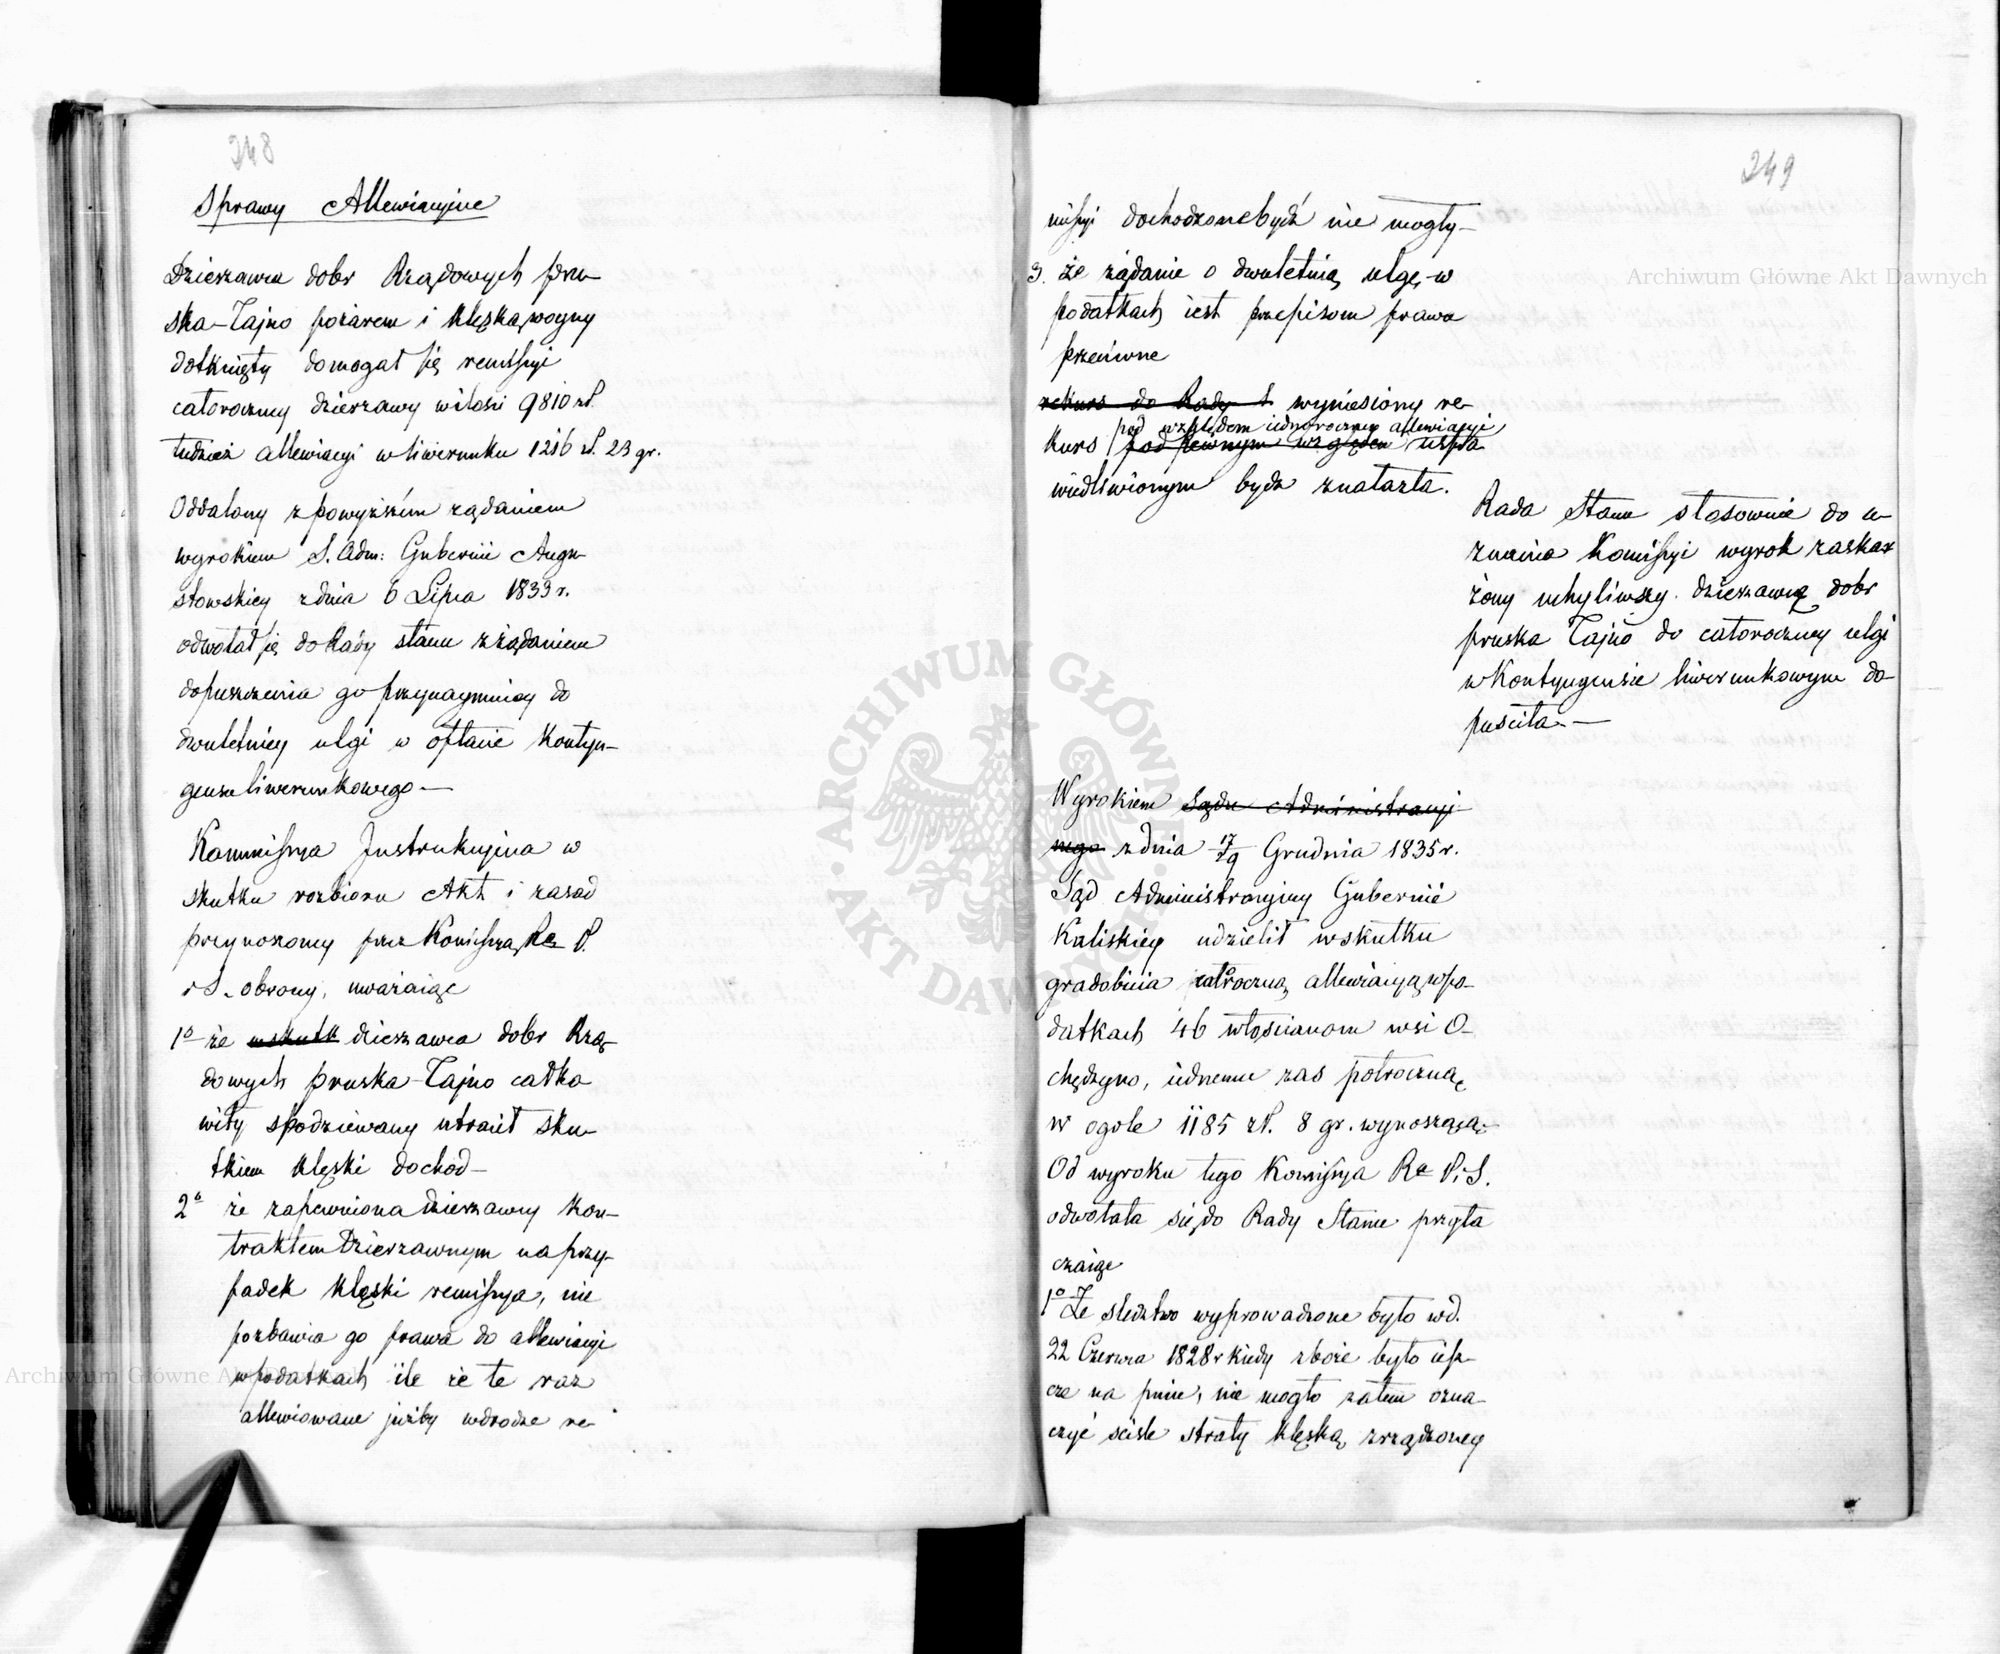 248
Sprawy Allewiacyjne
Dzierzawca dobr Rządowych pru-
ska-Tajno pożarem i klęską woyny
dotknięty domogał się remissyi
całoroczney dzierzawy wilości 9810 zł.
tudzież allewiacyi w liwerunku 1216 zł. 23 gr.
Oddalony z powyższém rządaniem
wyrokiem S. Adm: Gubernii Augu-
stowskiey z dnia 6 Lipca 1833 r.
odwołał się do Rady stanu z żądaniem
dopuszczenia go przynaymniey do
dwuletniey ulgi w opłacie kontyn-
gensu liwerunkowego —
Kommissya Instrukcyjna w
skutku rozbioru Akt i zasad
przynoszoney przez Komissyą Rz P.
i S. obrony, uważaiąc
1º że wskutk dzierzawca dobr Rzą-
dowych pruska-Tajno całko
wity spodziewany utracił sku-
tkiem klęski dochód —
2º że zapewniona dzierzawcy kon-
traktem Dzierzawnym na przy-
padek klęski remissya, nie
pozbawia go prawa do allewiacyi
w podatkach ile że te raz
allewiowane jużby wdrodze re-
249
missyi dochodzone bydź nie mogły —
3. że żądanie o dwuletnią ulgę w
podatkach iest przepisom prawa
przeciwne
rekurs do Rady S wyniesiony re-
pod względem iednoroczney allewiacyi
kurs pod pewnym względem uspra
wiedliwionym bydz znalazła.
Rada Stanu stosownie do u-
znania Komissyi wyrok zaskar
żony uchyliwszy. dzierzawcę dobr
pruska Tajno do całoroczney ulgi
w Kontyngensie liwerunkowym do-
puściła. —
Wyrokiem Sądu Administracyj-
nego z dnia 17/29 Grudnia 1835 r.
Sąd Administracyjny Gubernii
Kaliskiey udzielił wskutku
gradobicia całoroczną allewiacyą w po-
datkach 46 włościanom wsi O-
chędzyno, iednemu zas połroczną
w ogole 1185 zł. 8 gr. wynoszącą.
Od wyroku tego Komissya Rz P. i S.
odwołała się do Rady Stanu przyta
czaiąc
1º Że sledztwo wyprowadzone było w d.
22 Czerwca 1828 r kiedy zboże było iesz-
cze na pniu, nie mogło zatem ozna-
czyć scisle straty klęską zrządzoney
Archiwum Główne Akt Dawnych
ARCHIWUM GŁÓWNE AKT DAWNYCH
Archiwum Główne Akt Dawnych